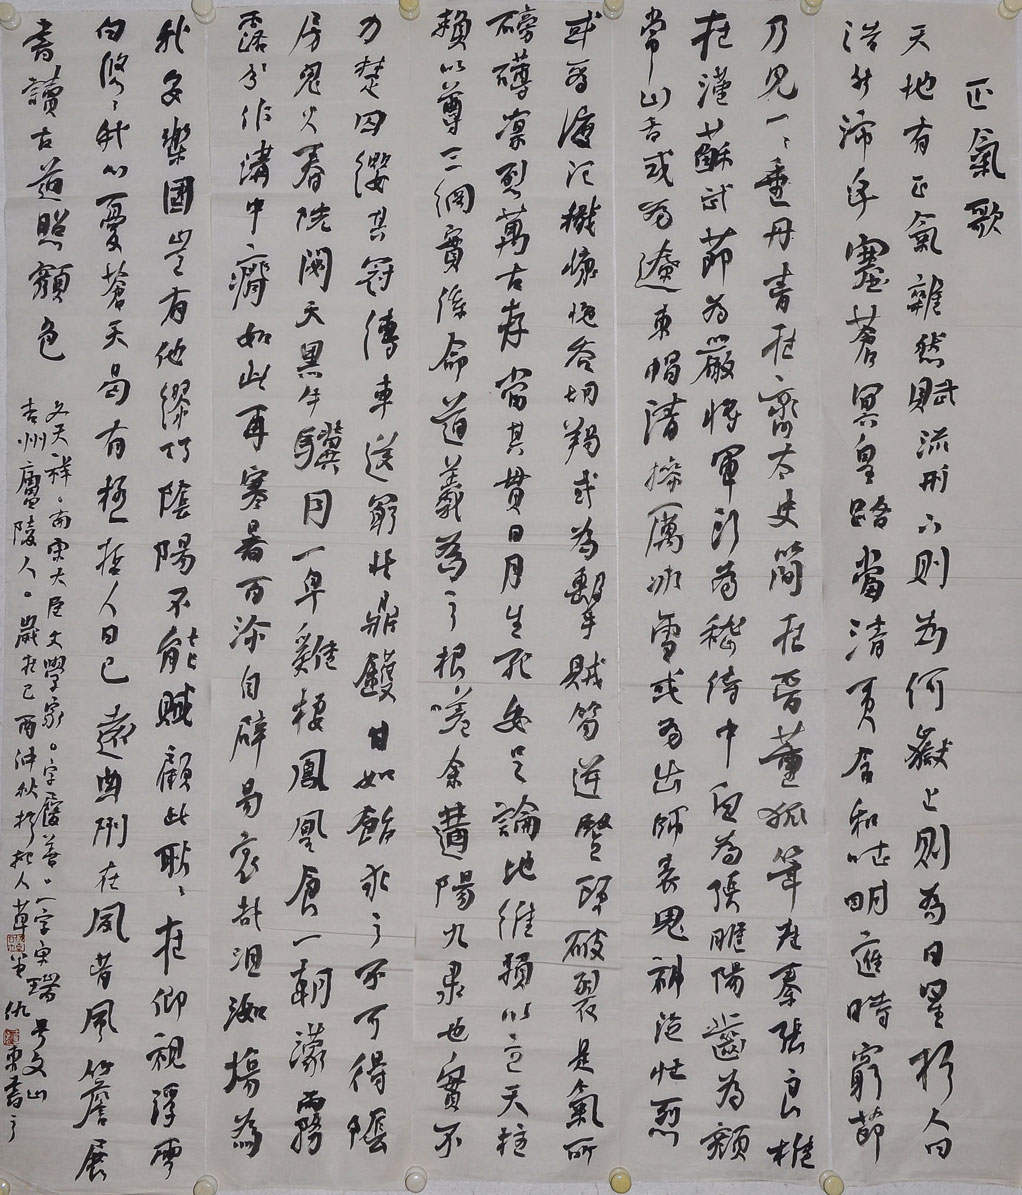 正氣歌
天地有正氣雜然賦流形下則為河嶽上則為日星於人曰
浩然沛乎塞蒼冥皇路當清夷含和吐明庭時窮節
乃見一々垂丹青在齊太史簡在晉董狐筆在秦張良椎
在漢蘇武節為嚴將軍頭為嵇侍中血為張睢陽齒為顏
常山舌或為遼東帽清操厲冰雪或為出師表鬼神泣壯烈
或為渡江楫慷慨吞胡羯或為擊賊笏逆豎頭破裂是氣所
磅礴凜烈萬古存當其貫日月生死安足論地維賴以立天柱
賴以尊三綱實係命道義為之根嗟余遘陽九隸也實不
力楚囚纓其冠傳車送窮北鼎鑊甘如飴求之不可得陰
房鬼火春院閟天黑牛驥同一皁雞棲鳳凰食一朝濛霧
露分作溝中瘠如此再寒暑百沴自辟易哀哉沮洳場為
我安樂國豈有他繆巧陰陽不能賊顧此耿々在仰視浮雲
白悠々我心憂蒼天曷有極哲人日已遠典刑在夙昔風簷展
書讀古道照顏色
文天祥。南宋大臣文學家。字履善。一字宋瑞 號文山
吉州廬陵人。歲在己酉仲秋於杞人草堂 仇東書之